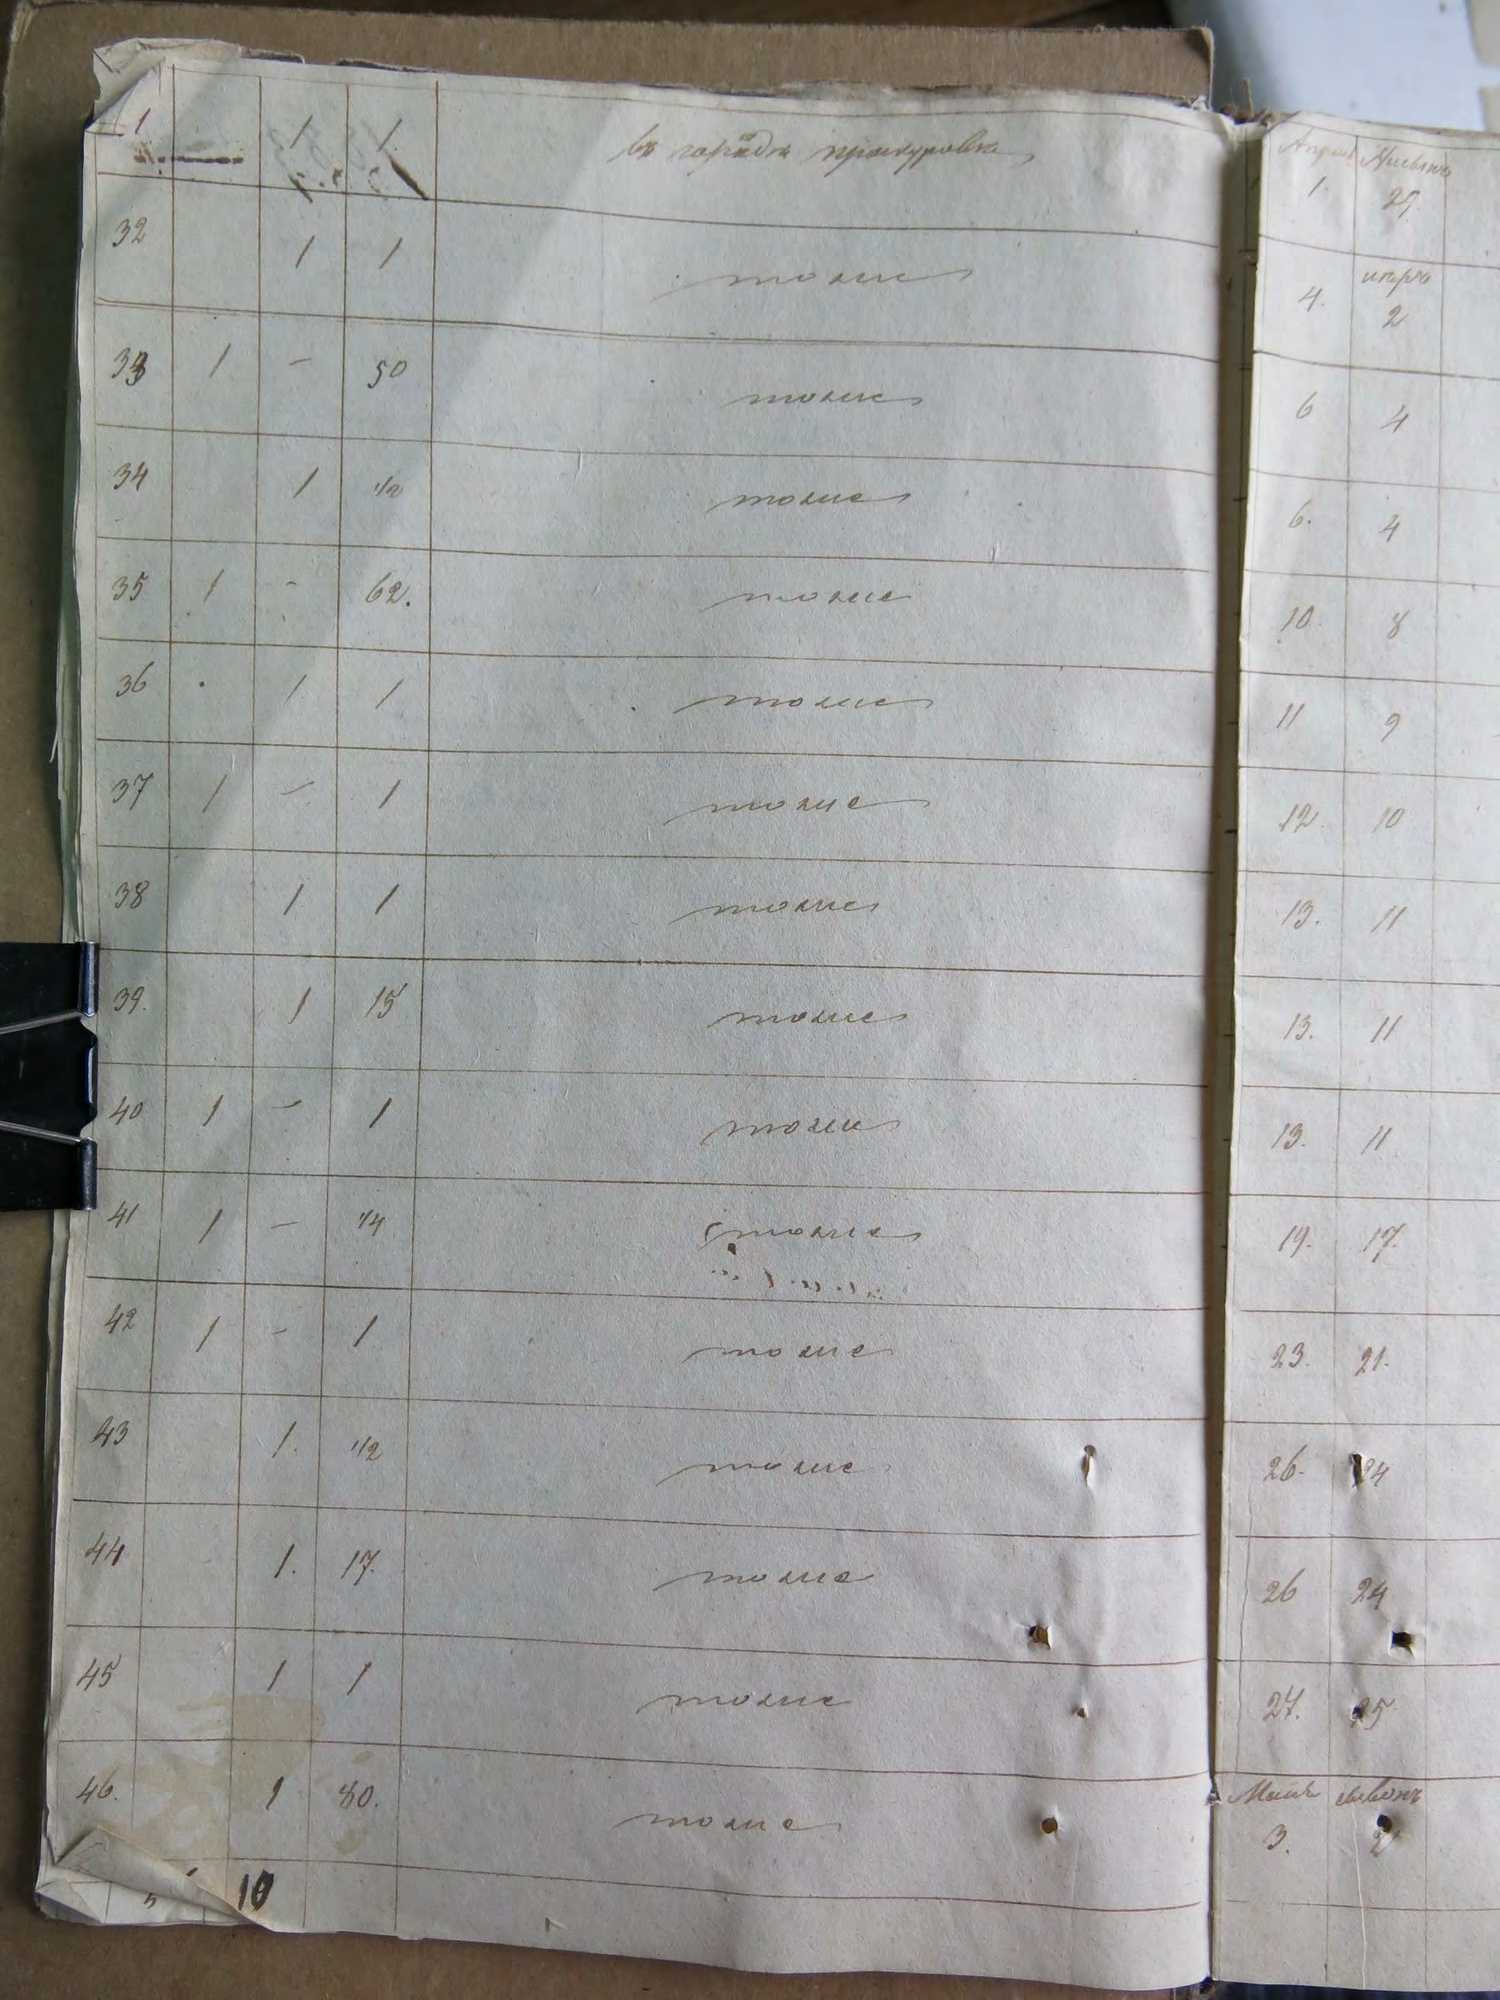 1 1 1 въ городѣ прокуровѣ
32 1 1 тоже
33 1 - 50 тоже
34 1 1/2 тоже
35 1 - 62. тоже
36 1 1 тоже
37 1 - 1 тоже
38 1 1 тоже
39. 1 15 тоже
40 1 - 1 тоже
41 1 - 1/4 тоже
42 1 - 1 тоже
43 1. 1/2 тоже
44 1. 17. тоже
45 1 1 тоже
46. 1 80. тоже
5 10
1. 29.
4. 2
6 4
6. 4
10. 8
11 9
12. 10
13. 11
13. 11
13. 11
19. 17.
23. 21.
26. 24
26 24
27. 25
3. 2